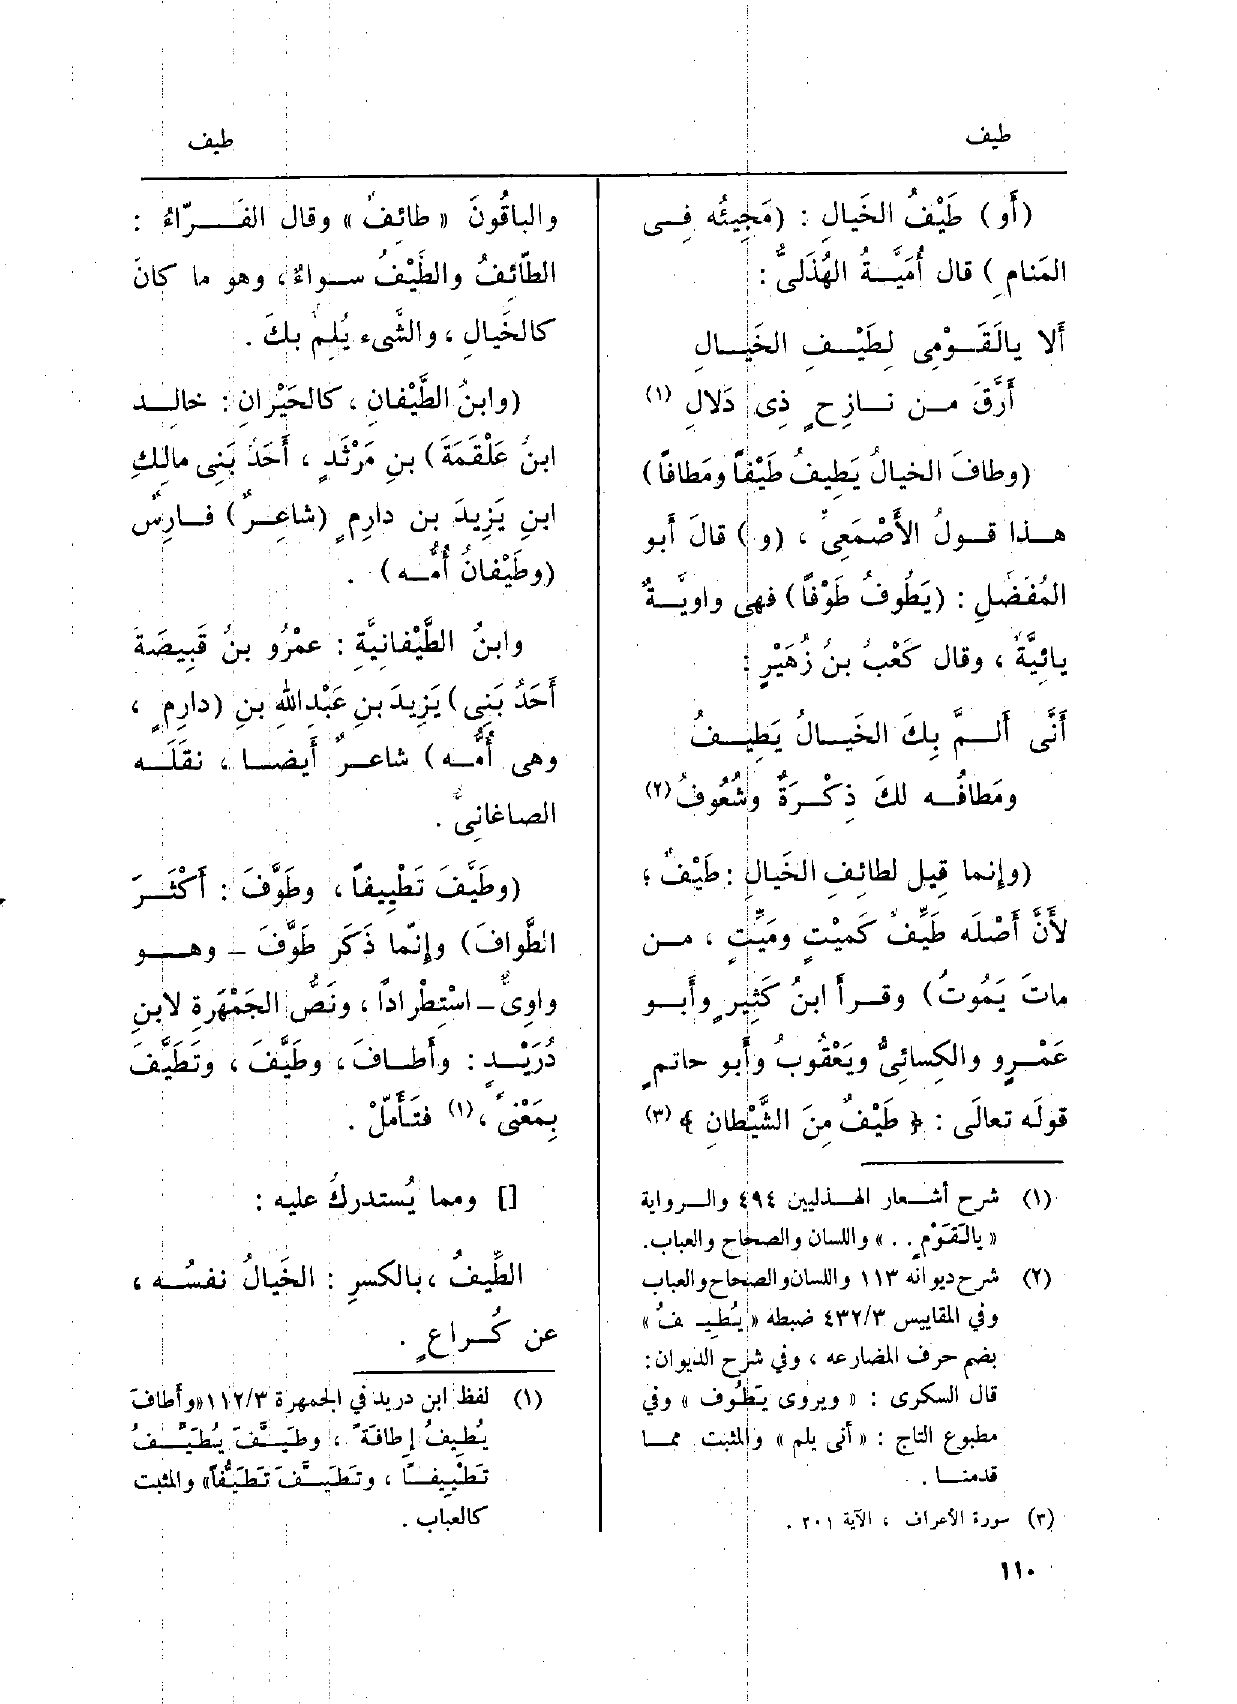 طيف
طيف
(أو) طَيْفُ الخَيالِ : (مَجِيئُه فِى
المَنامِ) قال أُمَيَّةُ الهُذَلىُّ :
ألا يالَقَوْمِى لِطَيْفِ الخَيالِ
أَرَّقَ مِن نازِحٍ ذِى دَلالِ (١)
(وطافَ الخيالُ يَطِيفُ طَيْفًا ومَطافًا)
هذا قولُ الأَصْمَعِىِّ ، (و) قالَ أبو
المُفَضَّلِ : (يَطُوفُ طَوْفًا) فهى واوِيَّةٌ
يائِيَّةٌ ، وقال كَعْبُ بنُ زُهَيْرٍ :
أَنَّى أَلمَّ بِكَ الخَيالُ يَطِيفُ
ومَطافُه لكَ ذِكْرَةٌ وشُعُوفُ (٢)
(وإنما قِيل لطائِفِ الخَيالِ : طَيْفٌ ؛
لأَنَّ أَصْلَه طَيِّفٌ كَمَيْتٍ ومَيِّتٍ ، مِن
ماتَ يَمُوتُ) وقرأ ابنُ كَثِيرٍ وأَبو
عَمْرٍو والكِسائِىُّ ويَعْقُوبُ وأَبو حاتمٍ
قولَه تعالَى : ﴿ طَيْفٌ مِنَ الشَّيْطانِ ﴾ (٣)
(١) شرح أشعار الهذليين ٤٩٤ والرواية
« يالَقَوْمٍ . . » واللسان والصحاح والعباب.
(٢) شرح ديوانه ١١٣ واللسان والصحاح والعباب
وفي المقاييس ٤٣٢/٣ ضبطه « يُطيف »
بضم حرف المضارعه ، وفي شرح الديوان:
قال السكرى : « ويروى يَطُوف » وفي
مطبوع التاج : « أنى يلم » والمثبت مما
قدمنا .
(٣) سورة الأعراف ، الآية ٢٠١ .
والباقُونَ « طائفٌ » وقال الفَرّاءُ :
الطّائفُ والطَّيْفُ سواءٌ ، وهو ما كانَ
كالخَيالِ ، والشَّىء يُلِمُّ بكَ .
(وابنُ الطَّيْفانِ ، كالحَيْرانِ : خالِد
ابنُ عَلْقَمَةَ) بنِ مَرْثَدٍ ، أَحَدُ بَنِى مالِكِ
ابنِ يَزِيدَ بن دارِمٍ (شاعِرٌ) فارِسٌ
(وطَيْفانُ أُمُّه) .
وابنُ الطَّيْفانِيَّةِ : عمْرُو بنُ قَبِيصَةَ
أَحَدُ بَنِى) يَزِيدَ بنِ عَبْدِاللهِ بنِ (دارِمٍ ،
وهى أُمُّه) شاعرٌ أَيضا ، نقَلَه
الصاغانِىُّ .
(وطَيَّفَ تَطْيِيفاً ، وطَوَّفَ : أَكْثَرَ
الطَّوافَ) وإنّما ذَكَر طَوَّفَ – وهو
واوِىٌّ – اسْتِطْراداً ، ونَصُّ الجَمْهَرَةِ لابنِ
دُرَيْدٍ : وأَطافَ ، وطَيَّفَ ، وتَطَيَّفَ
بِمَعْنًى ، (١) فتَأَمّلْ .
[] ومما يُستدركُ عليه :
الطِّيفُ ، بالكسرِ : الخَيالُ نفسُه ،
عن كُراعٍ .
(١) لفظ ابن دريد في الجمهرة ١١٢/٣ « وأطافَ
يُطِيفُ إطافَةً ، وطَيَّفَ يُطَيِّفُ
تَطْيِيفًا ، وتَطَيَّفَ تَطَيُّفًا » والمثبت
كالعباب .
١١٠